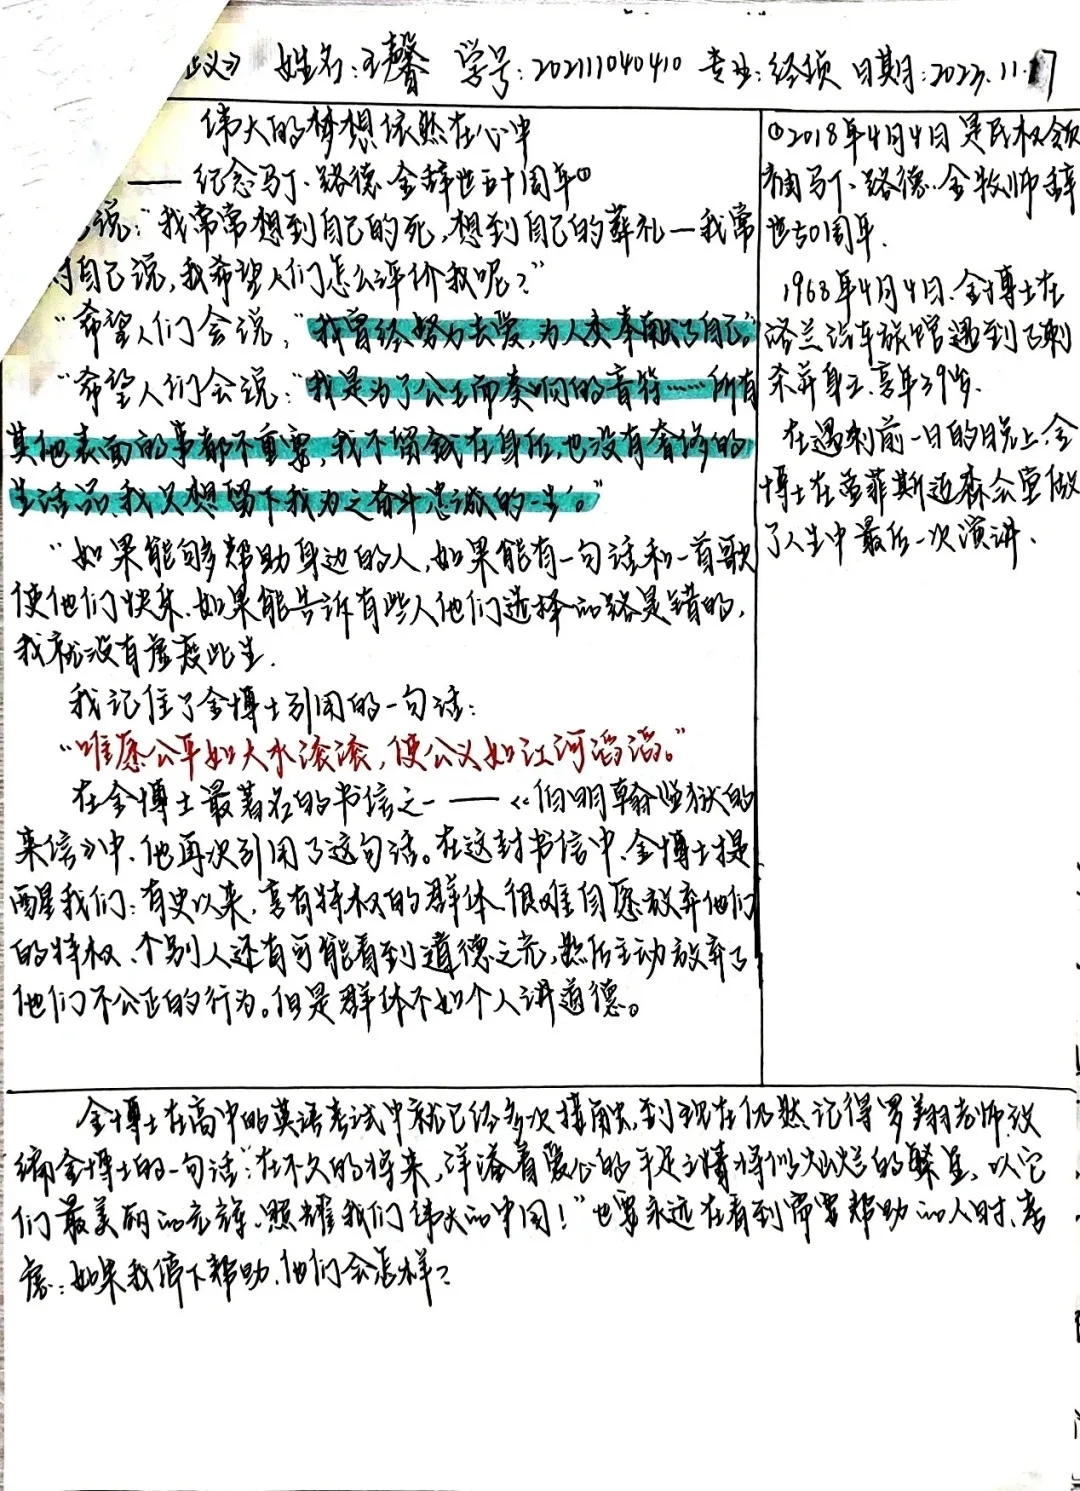 正义》 姓名:王馨 学号:202111040410 专业:经侦 日期:2023.11.17
伟大的梦想依然在心中
——纪念马丁·路德·金辞世五十周年①
说:“我常常想到自己的死,想到自己的葬礼—我常
对自己说,我希望人们怎么评价我呢?”
“希望人们会说,“我曾经努力去爱,为人类奉献了自己。”
“希望人们会说:“我是为了公正而奏响的音符……所有
其他表面的事都不重要,我不留钱在身后,也没有奢侈的
生活品,我只想留下我为之奋斗忠诚的一生。”
“如果能够帮助身边的人,如果能有一句话和一首歌
使他们快乐,如果能告诉有些人他们选择的路是错的,
我就没有虚度此生.
我记住了金博士引用的一句话:
“唯愿公平如大水滚滚,使公义如江河滔滔。”
在金博士最著名的书信之一——《伯明翰监狱的
来信》中,他再次引用了这句话。在这封书信中,金博士提
醒我们:有史以来,享有特权的群体很难自愿放弃他们
的特权、个别人还有可能看到道德之光,然后主动放弃了
他们不公正的行为。但是群体不如个人讲道德。
①2018年4月4日是民权领
袖马丁·路德·金牧师辞
世50周年.
1968年4月4日,金博士在
洛兰汽车旅馆遇到了刺
杀并身亡,享年39岁.
在遇刺前一日的晚上,金
博士在孟菲斯迈森会堂做
了人生中最后一次演讲.
金博士在高中的英语考试中就已经多次接触,到现在仍然记得罗翔老师改
编金博士的一句话:“在不久的将来,洋溢着爱心的手足之情将似灿烂的繁星,以它
们最美丽的光辉,照耀我们伟大的中国!”也要永远在看到需要帮助的人时,考
虑:如果我停下帮助,他们会怎样?